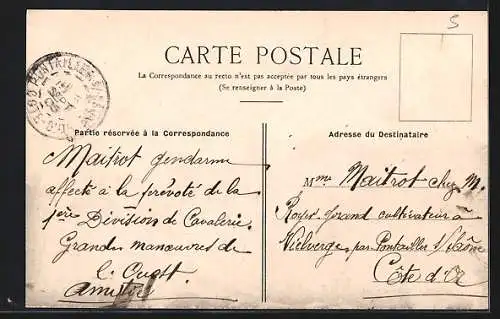 5
CARTE POSTALE
La Correspondance au recto n'est pas acceptée par tous les pays étrangers
(Se renseigner à la Poste)
Partie réservée à la Correspondance
Maitrot gendarme
affecté à la prévoté de la
1ère Division de Cavalerie.
Grandes manœuvres de
l'Ouest.
Amitiés
Adresse du Destinataire
Mme Maitrot chez M.
Royer grand cultivateur à
Vielverge par Pontailler s/ Saône
Côte d'Or